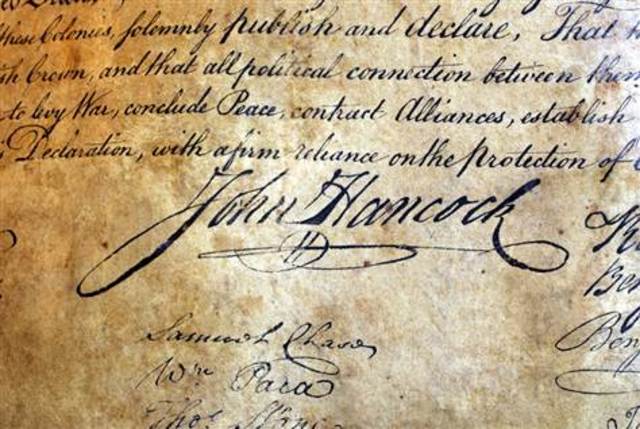 these Colonies, solemnly publish and declare, That
Crown, and that all political connection between them
to levy War, conclude Peace, contract Alliances, establish
Declaration, with a firm reliance on the Protection of
John Hancock
Samuel Chase
Wm Paca
Thos Stone
Ben